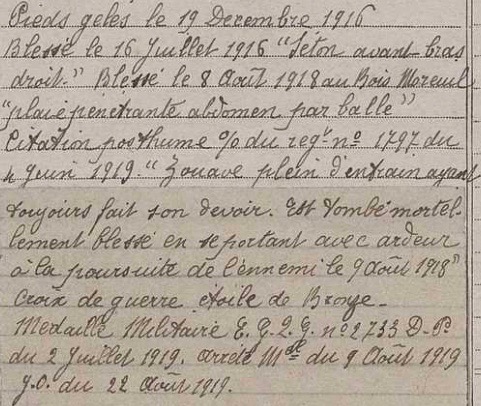 Pieds gelés le 19 Decembre 1916
Blessé le 16 Juillet 1916 "Séton avant-bras
droit." Blessé le 8 Août 1918 au Bois Moreuil
"plaie pénétrante abdomen par balle"
Citation posthume % du régt nº 1797 du
4 Juin 1919. "Zouave plein d'entrain ayant
toujours fait son devoir. Est tombé mortel-
lement blessé en se portant avec ardeur
à la poursuite de l'ennemi le 9 Août 1918"
Croix de guerre étoile de Bronze.
Medaille Militaire E. G. Q. G. nº 2733 D. Pº
du 2 Juillet 1919. arrêté Mel du 9 Août 1919
J.O. du 22 Août 1919.